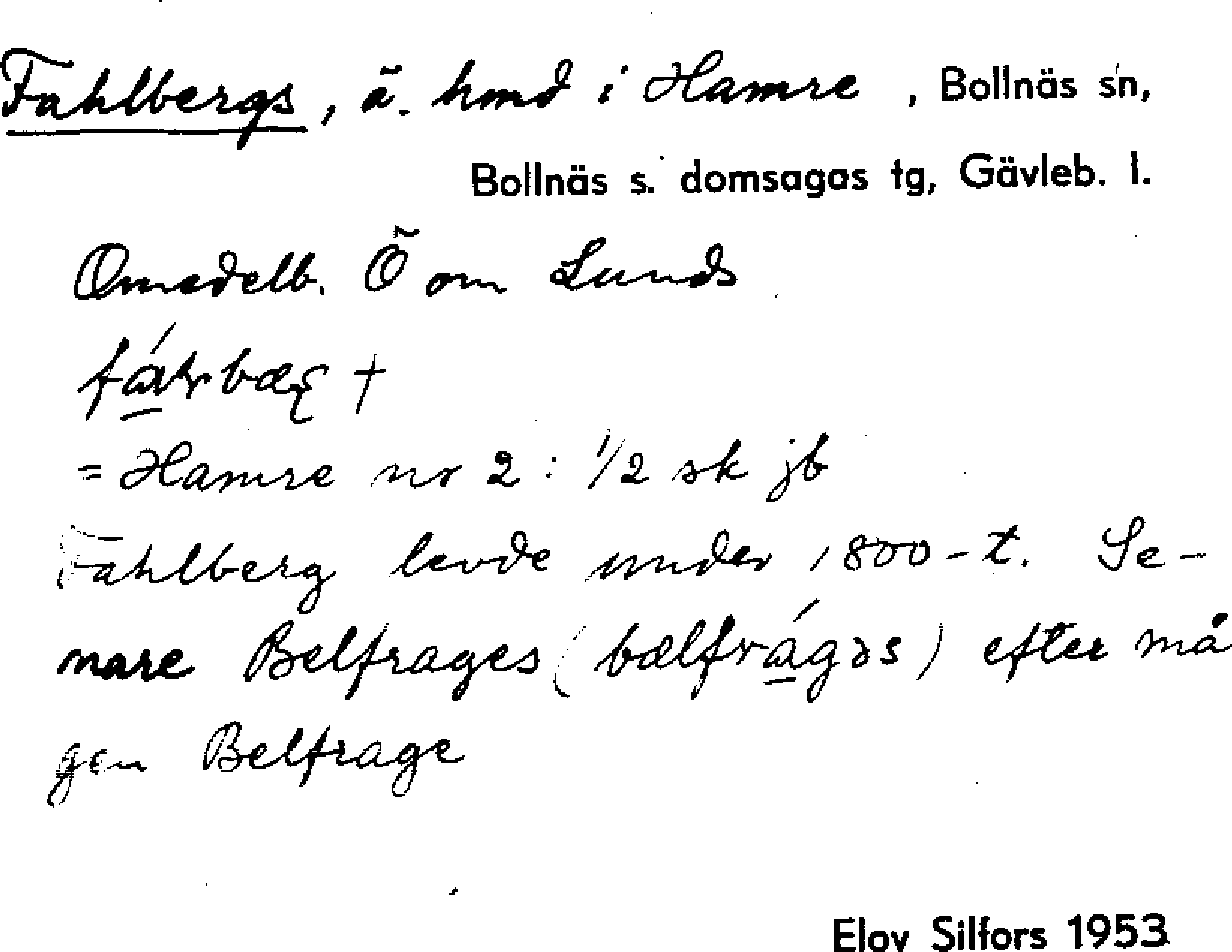 Fahlbergs, ä. hmd i Hamre, Bollnäs sn,
Bollnäs s. domsagas tg, Gävleb. l.
Omedelb. Ö om Lunds
†
= Hamre nr 2 : 1/2 sk jb
Fahlberg levde under 1800-t. Se-
nare Belfrages (bælfrágəs) efter må
gen Belfrage
Elov Silfors 1953